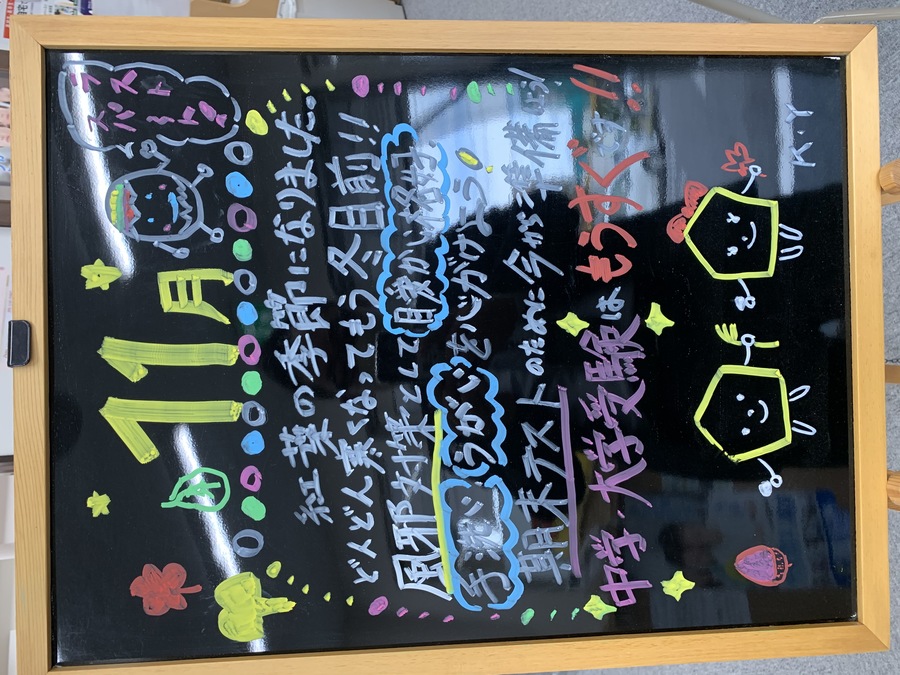 11月
ラスト
スパート
紅葉の季節になりました。
どんどん寒くなってもう冬目前!!
風邪対策として暖かい格好、
手洗い、うがいを心がけよう!
期末テストのために今から準備しよう!
中学、大学受験はもうすぐです!!
K・Y